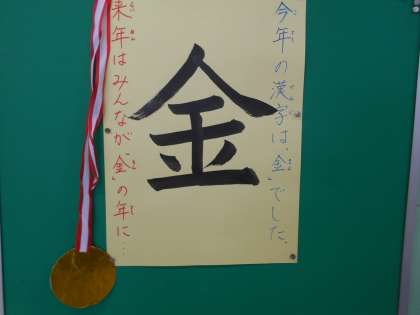 今年の漢字は、"金"でした。
金
来年はみんなが"金"の年に…